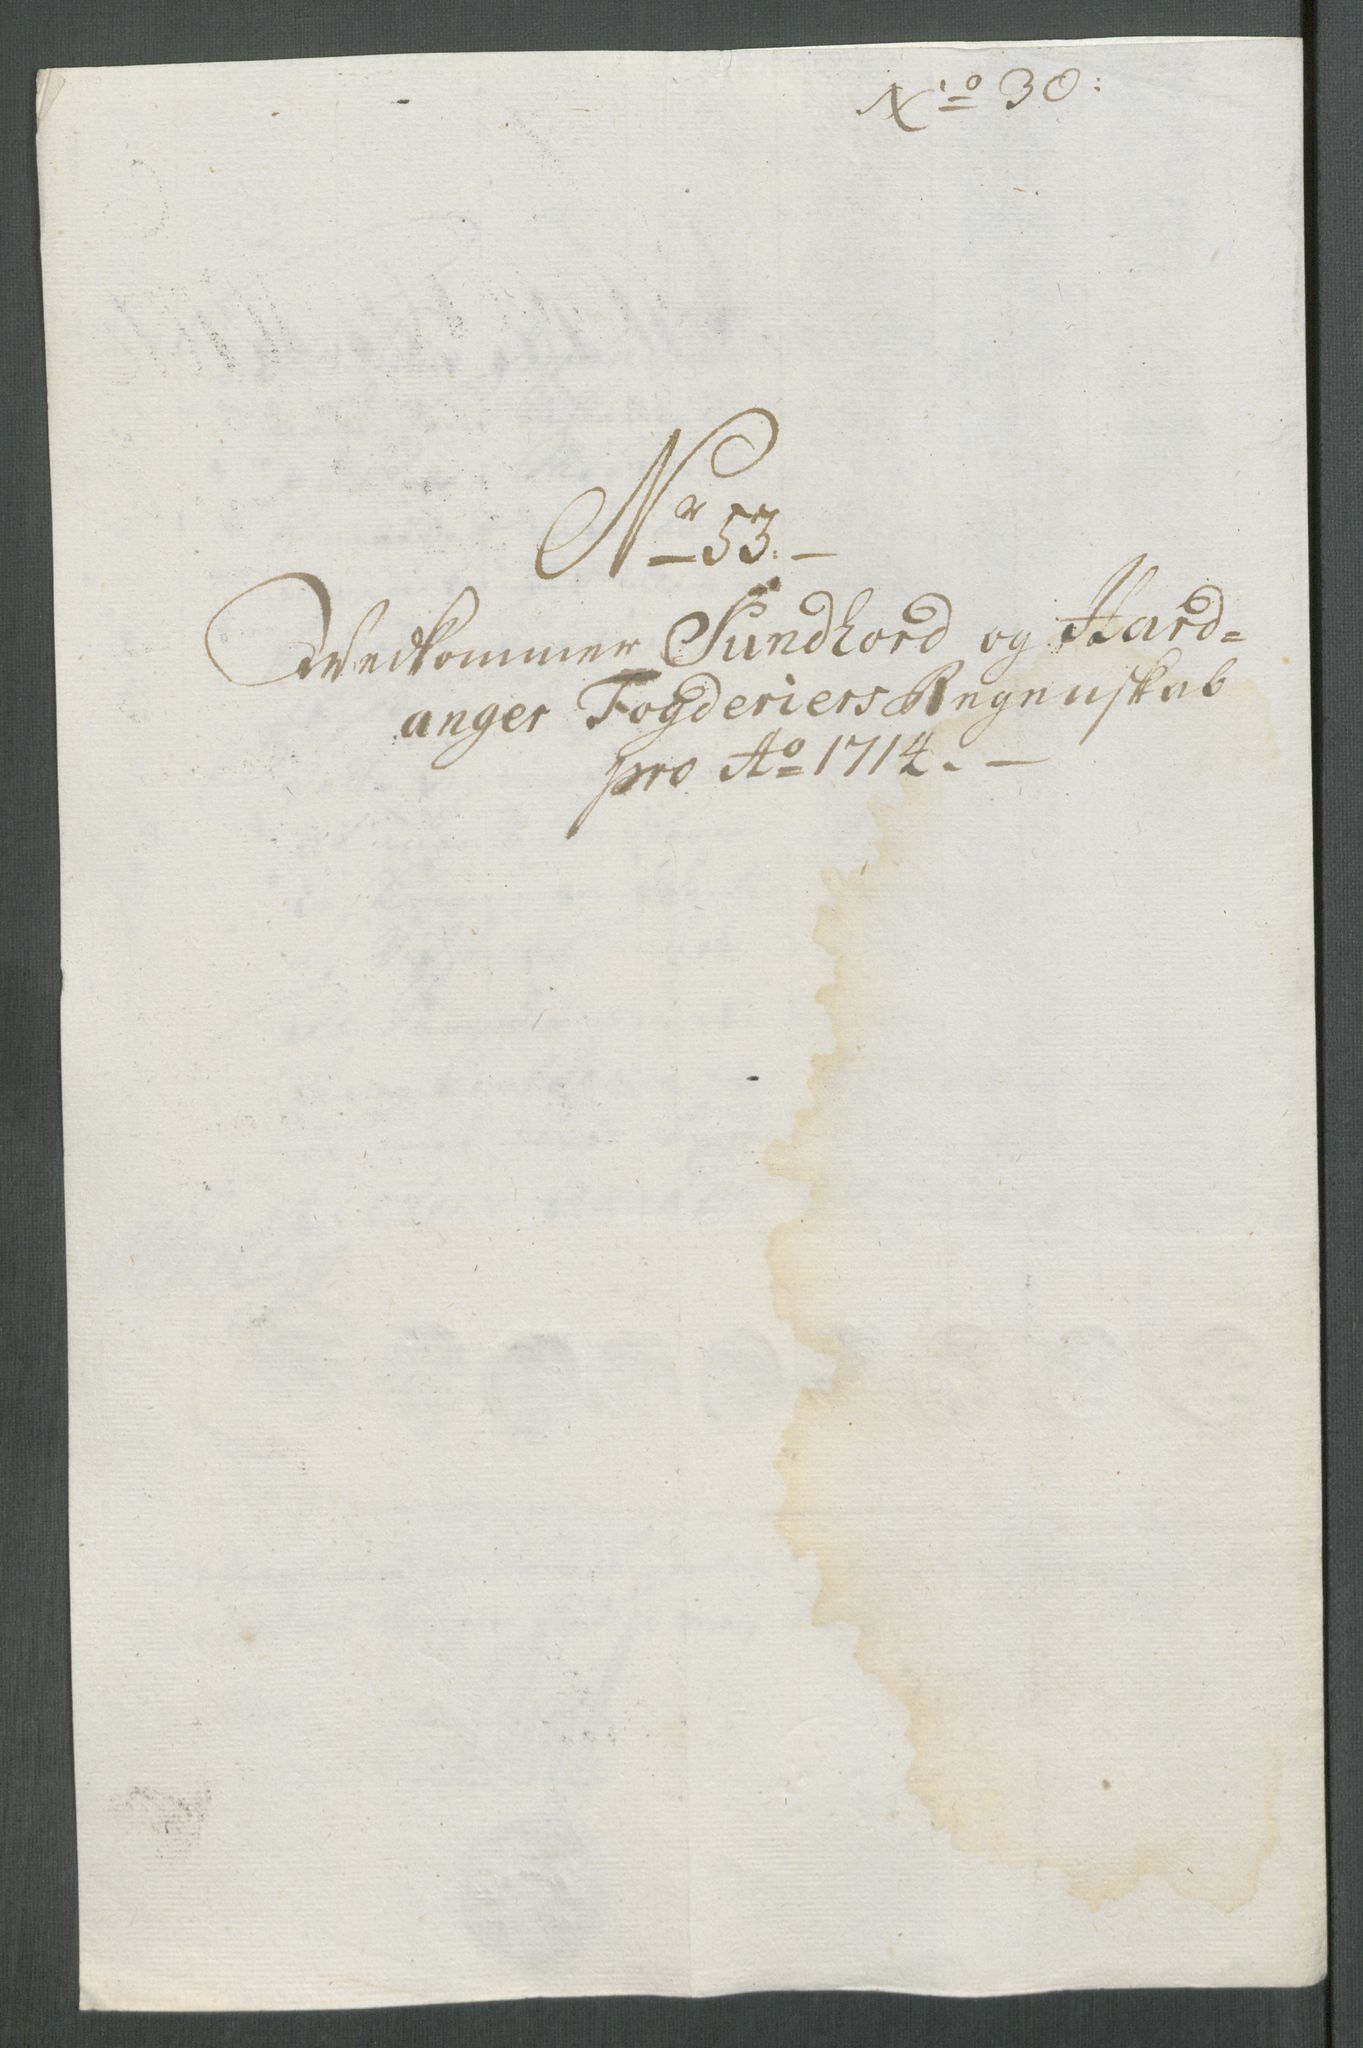 No 30:
Nr 53.
Vedkommer Sundhord og Hard-
anger Fogderiers Regenskab
pro Ao 1714.